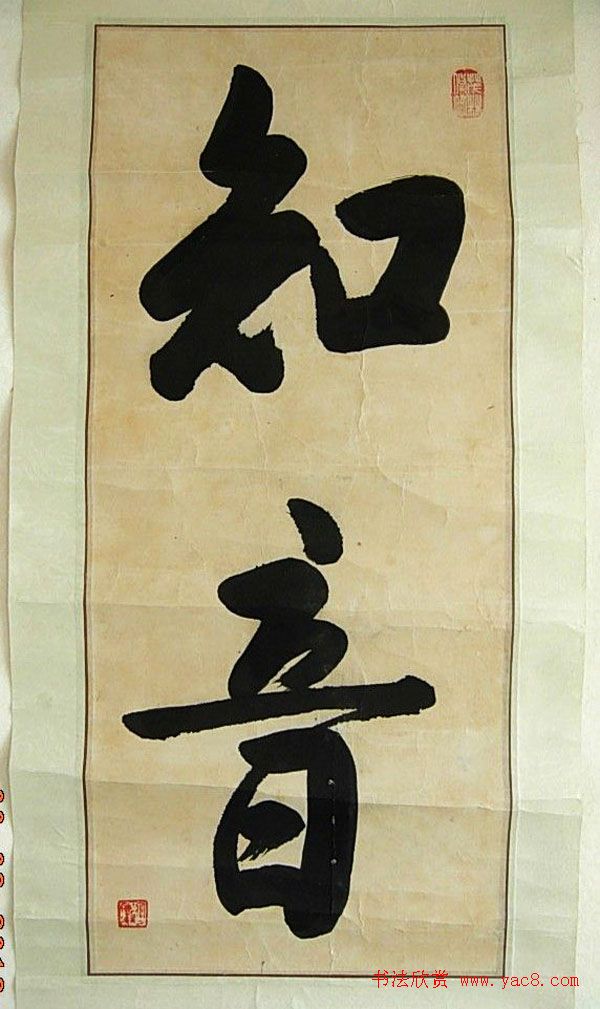 知
音
书法欣赏 www.yac8.com